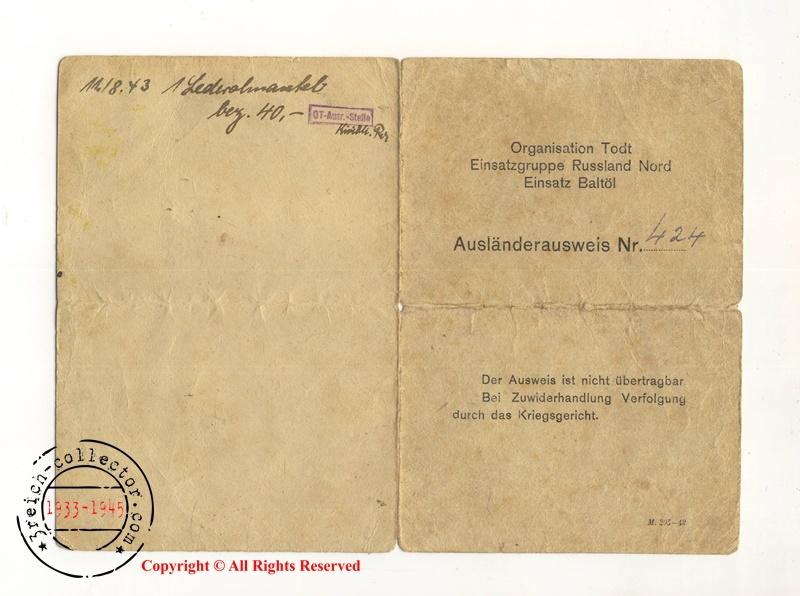 11/8.43 1 Lederolmantel
bez. 40,-
OT-Ausr.-Stelle
Organisation Todt
Einsatzgruppe Russland Nord
Einsatz Baltöl
Ausländerausweis Nr. 424
Der Ausweis ist nicht übertragbar
Bei Zuwiderhandlung Verfolgung
durch das Kriegsgericht.
M. 205-42
3reich-collector.com
1933-1945
Copyright © All Rights Reserved